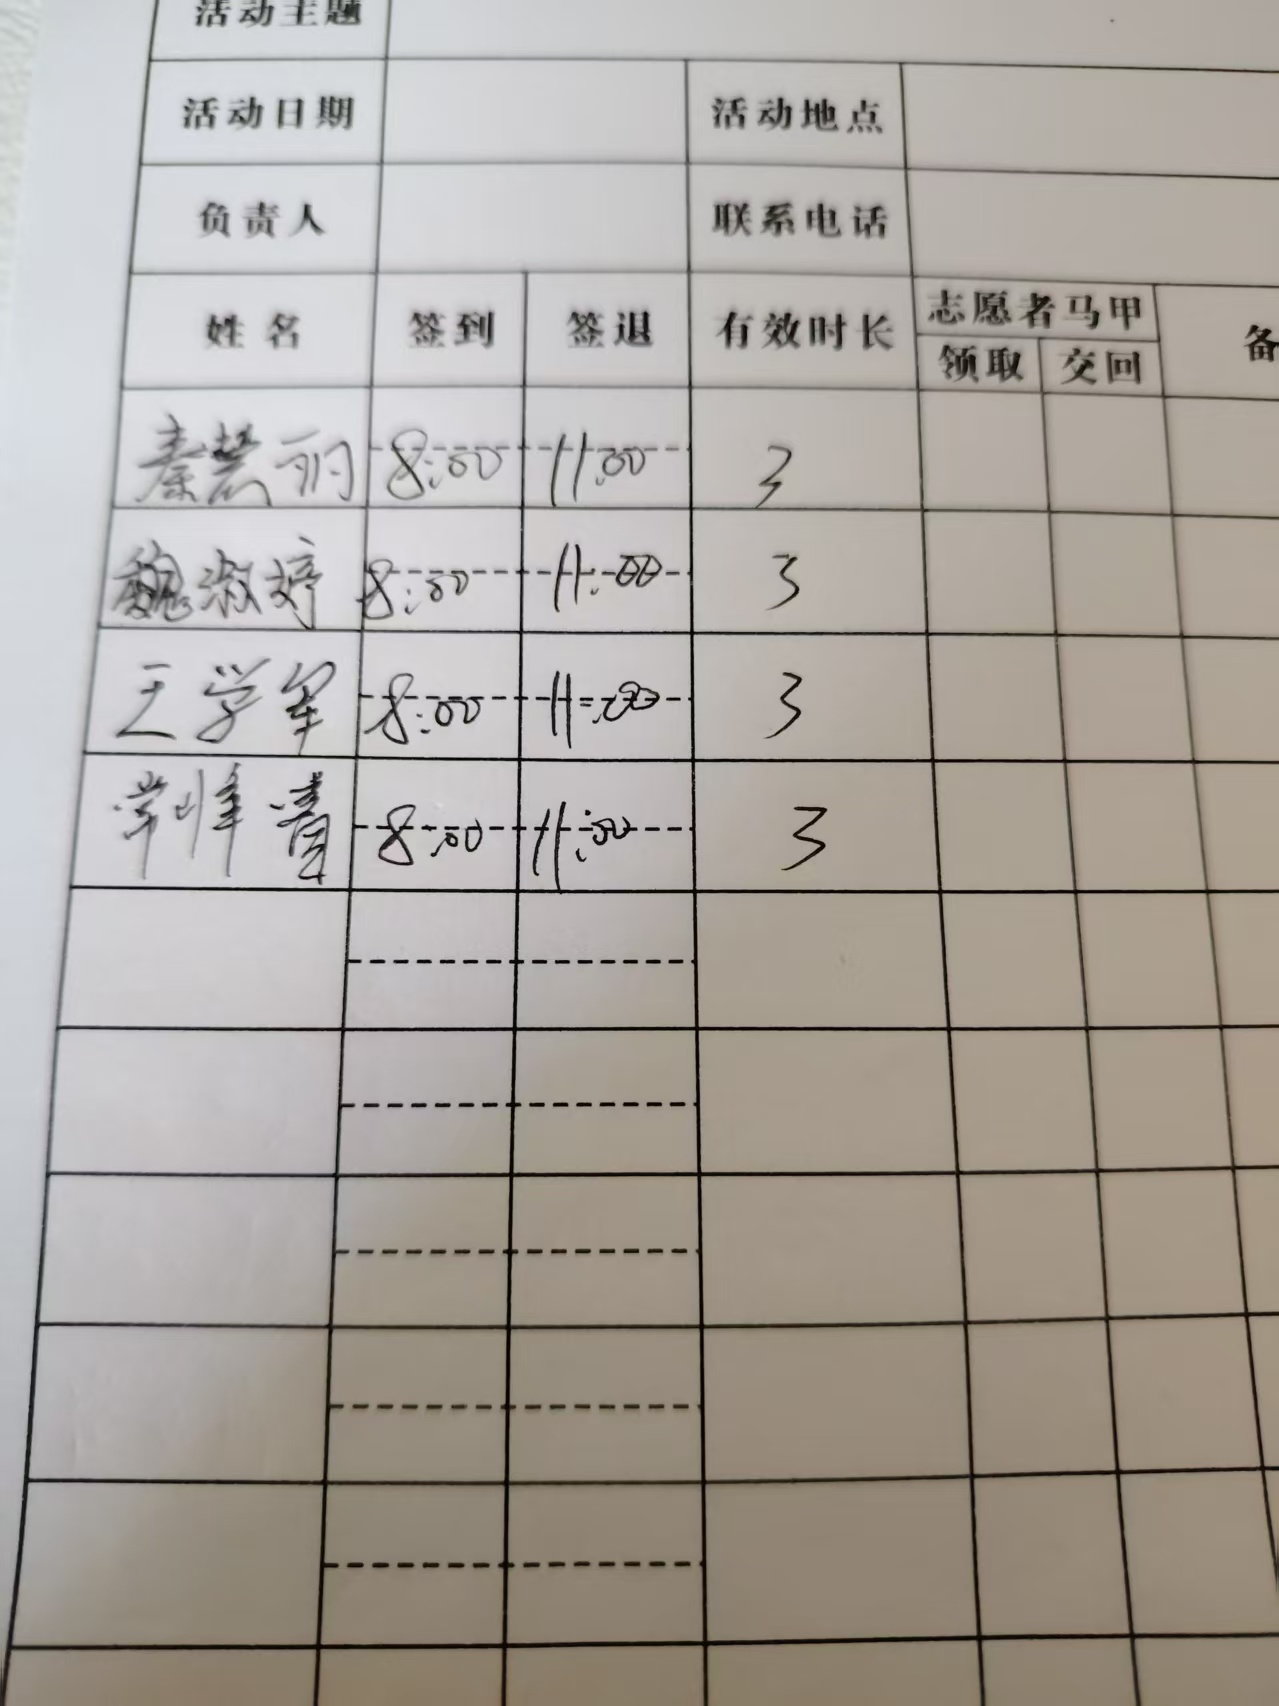 活动主题
活动日期 活动地点
负责人 联系电话
姓名 签到 签退 有效时长 志愿者马甲 备
领取 交回
秦慧丽 8:00 11:00 3
魏淑婷 8:00 11:00 3
王学军 8:00 11:00 3
8:00 11:00 3